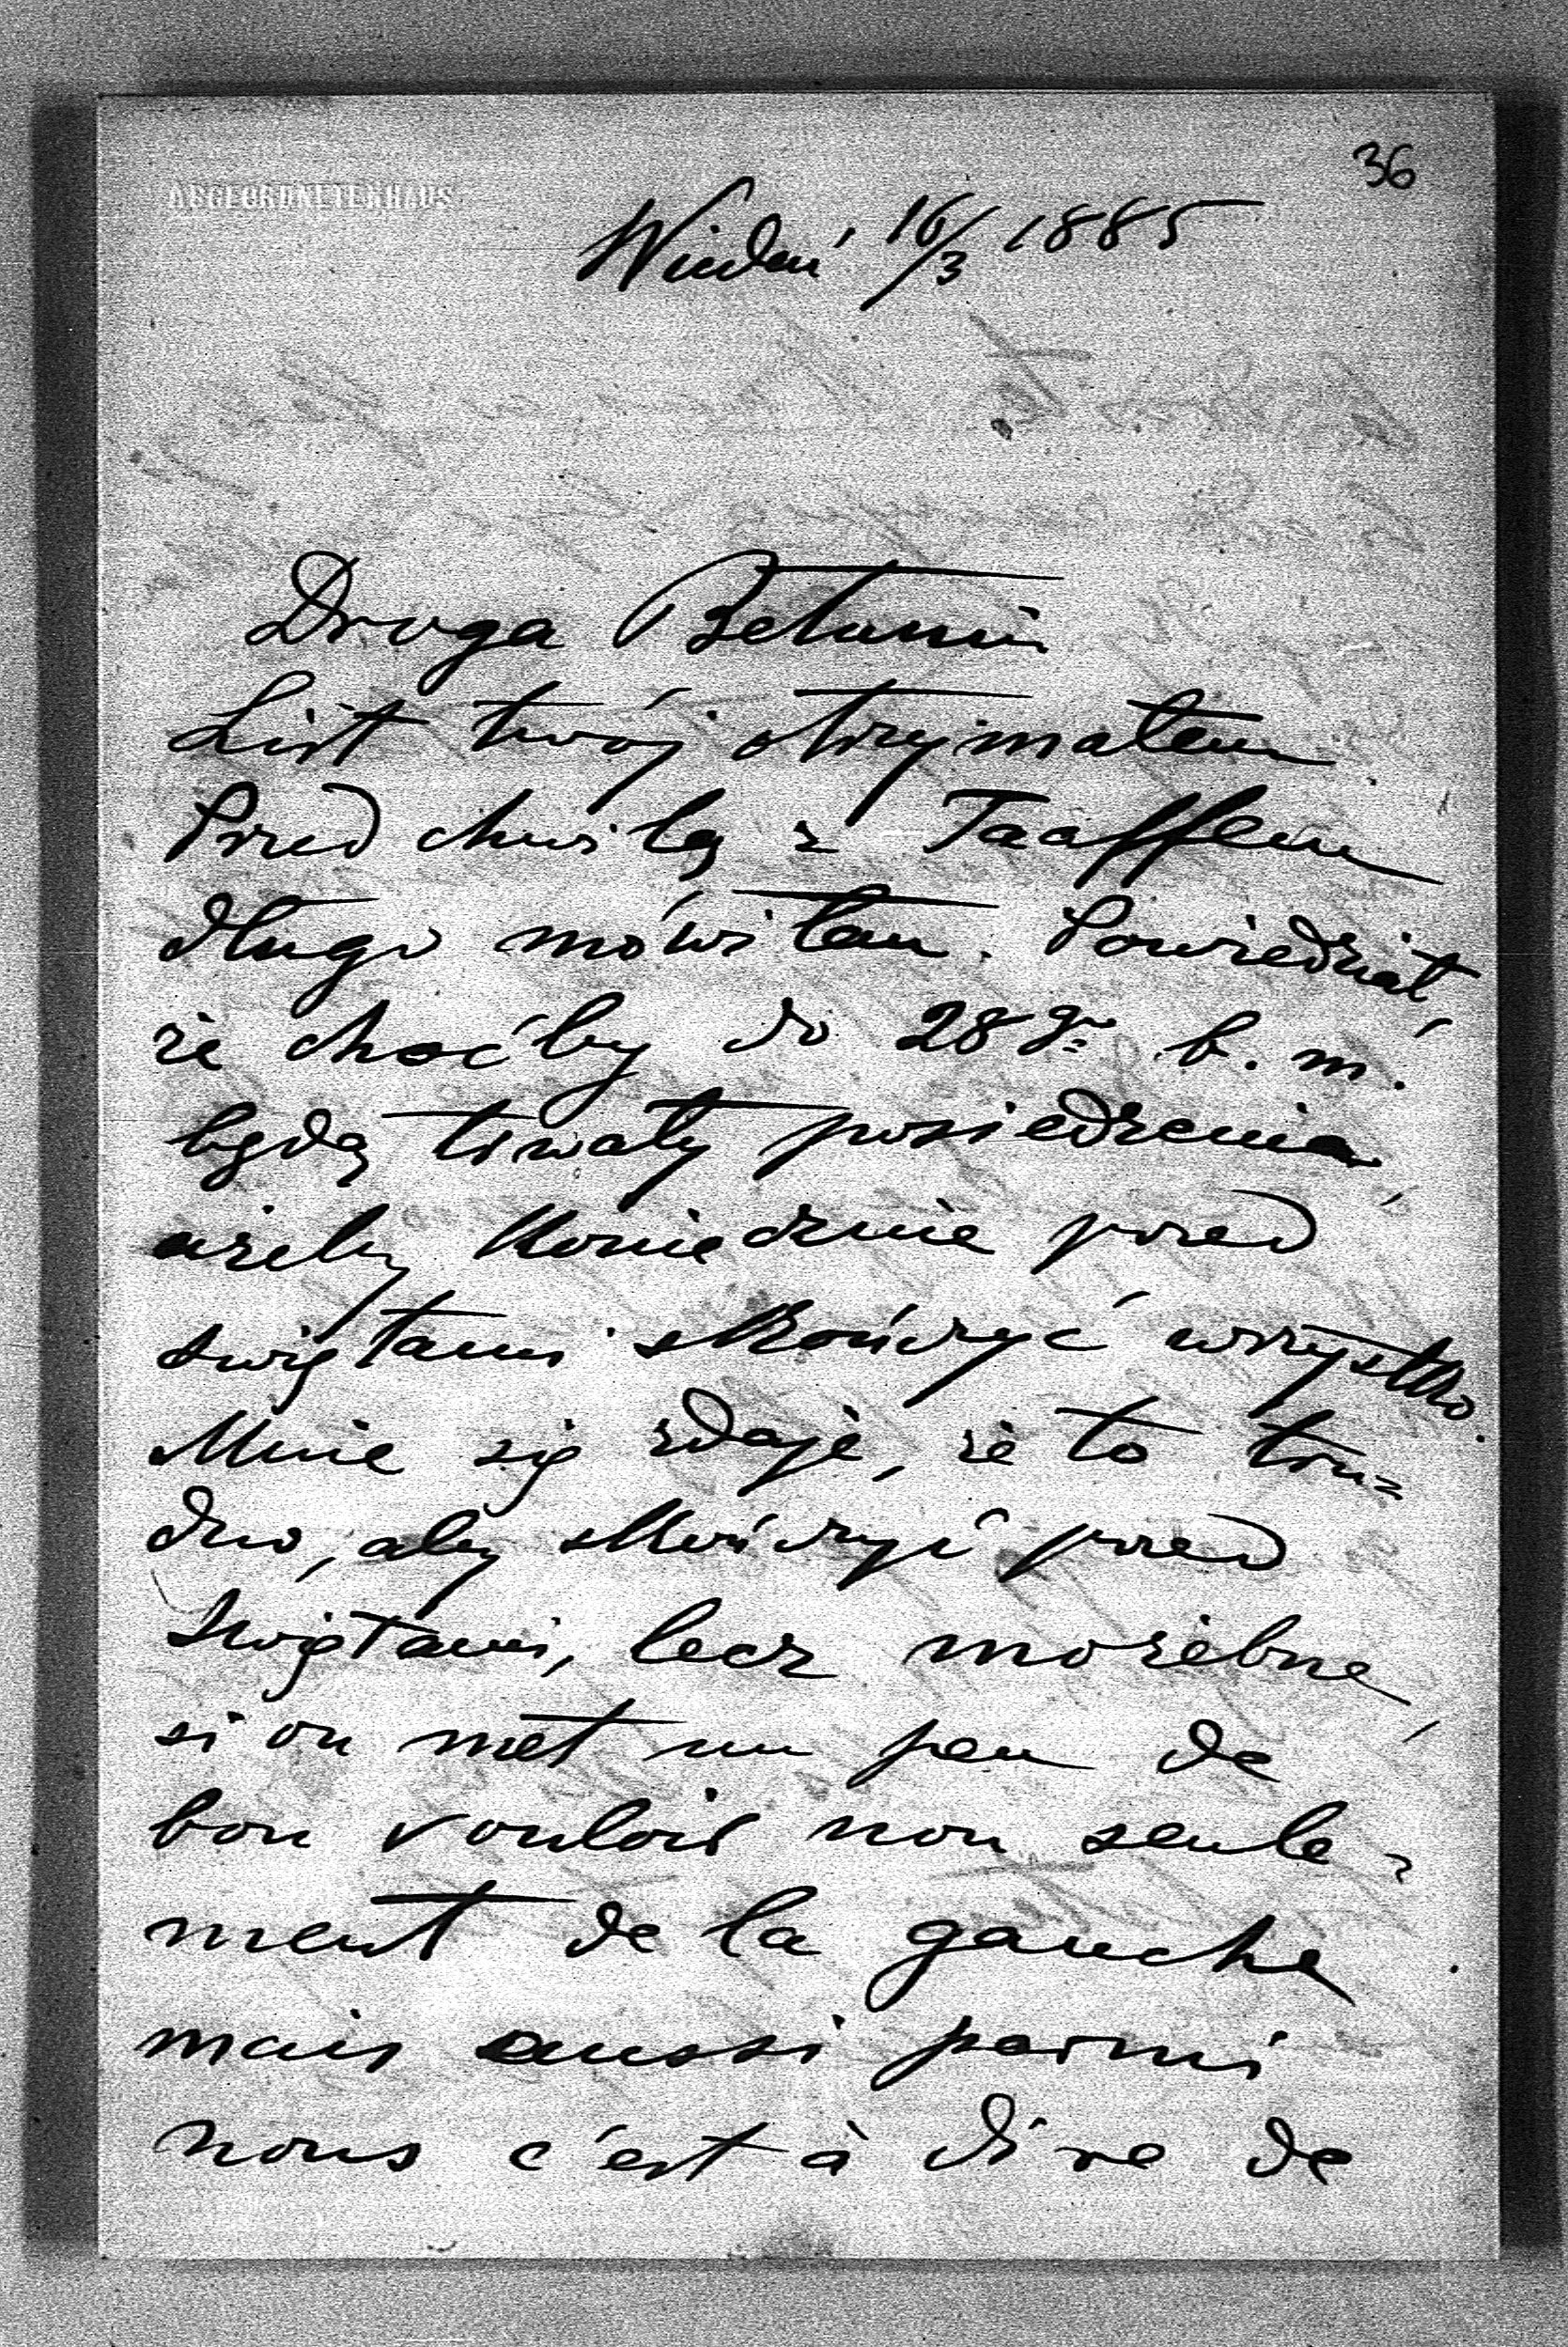 36
ABGEORDNETENHAUS
Wiedeń 16/3 1885
Droga Betuniu
List twój otrzymałem
Przed chwilą z Taaffem
długo mówiłem. Powiedział,
że choćby do 28go b. m.
będą trwały posiedzenia,
ażeby koniecznie przed
świętami skończyć wszystko.
Mnie się zdaje, że to tru=
dno, aby skończyć przed
świętami, lecz możebne,
si on met un peu de
bon vouloir non seule=
ment de la gauche
mais aussi parmi
nous c'est à dire de